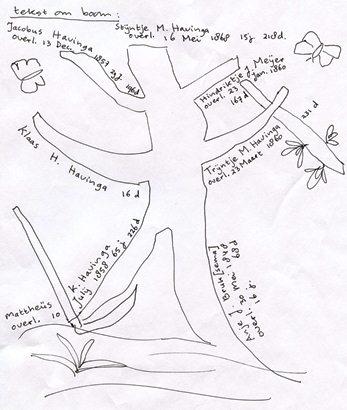 tekst om boom:
Jacobus Havinga
overl. 13 Dec 1857
29j 196d
Stijntje M. Havinga
overl. 16 Mei 1868 15j. 218d.
Hindriktje J. Meijer
overl. 23 Jan. 1860
167d
231 d
Klaas H. Havinga 16 d
Trijntje M. Havinga
overl. 23 Maart 1860
Mattheüs K. Havinga
overl. 10 July 1858 65j 226d
Anje J. Bruin
overl. 30 Mei
68d